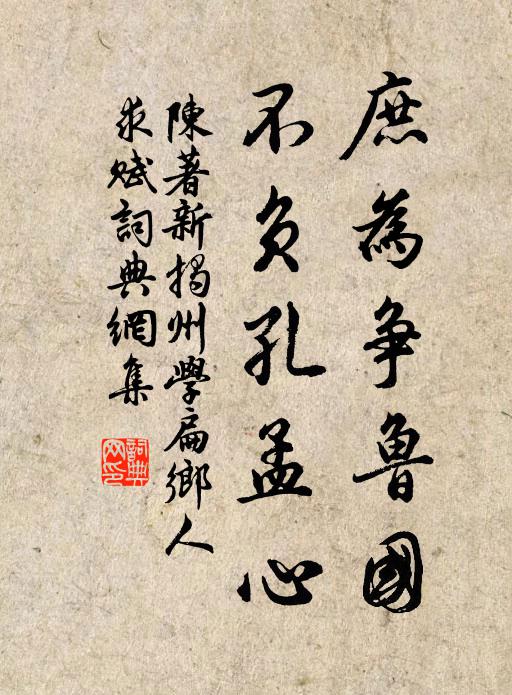 庶為爭魯國
不負孔孟心
陳著新揭州學扁鄉人
求賦詞典網集
詞典
网印